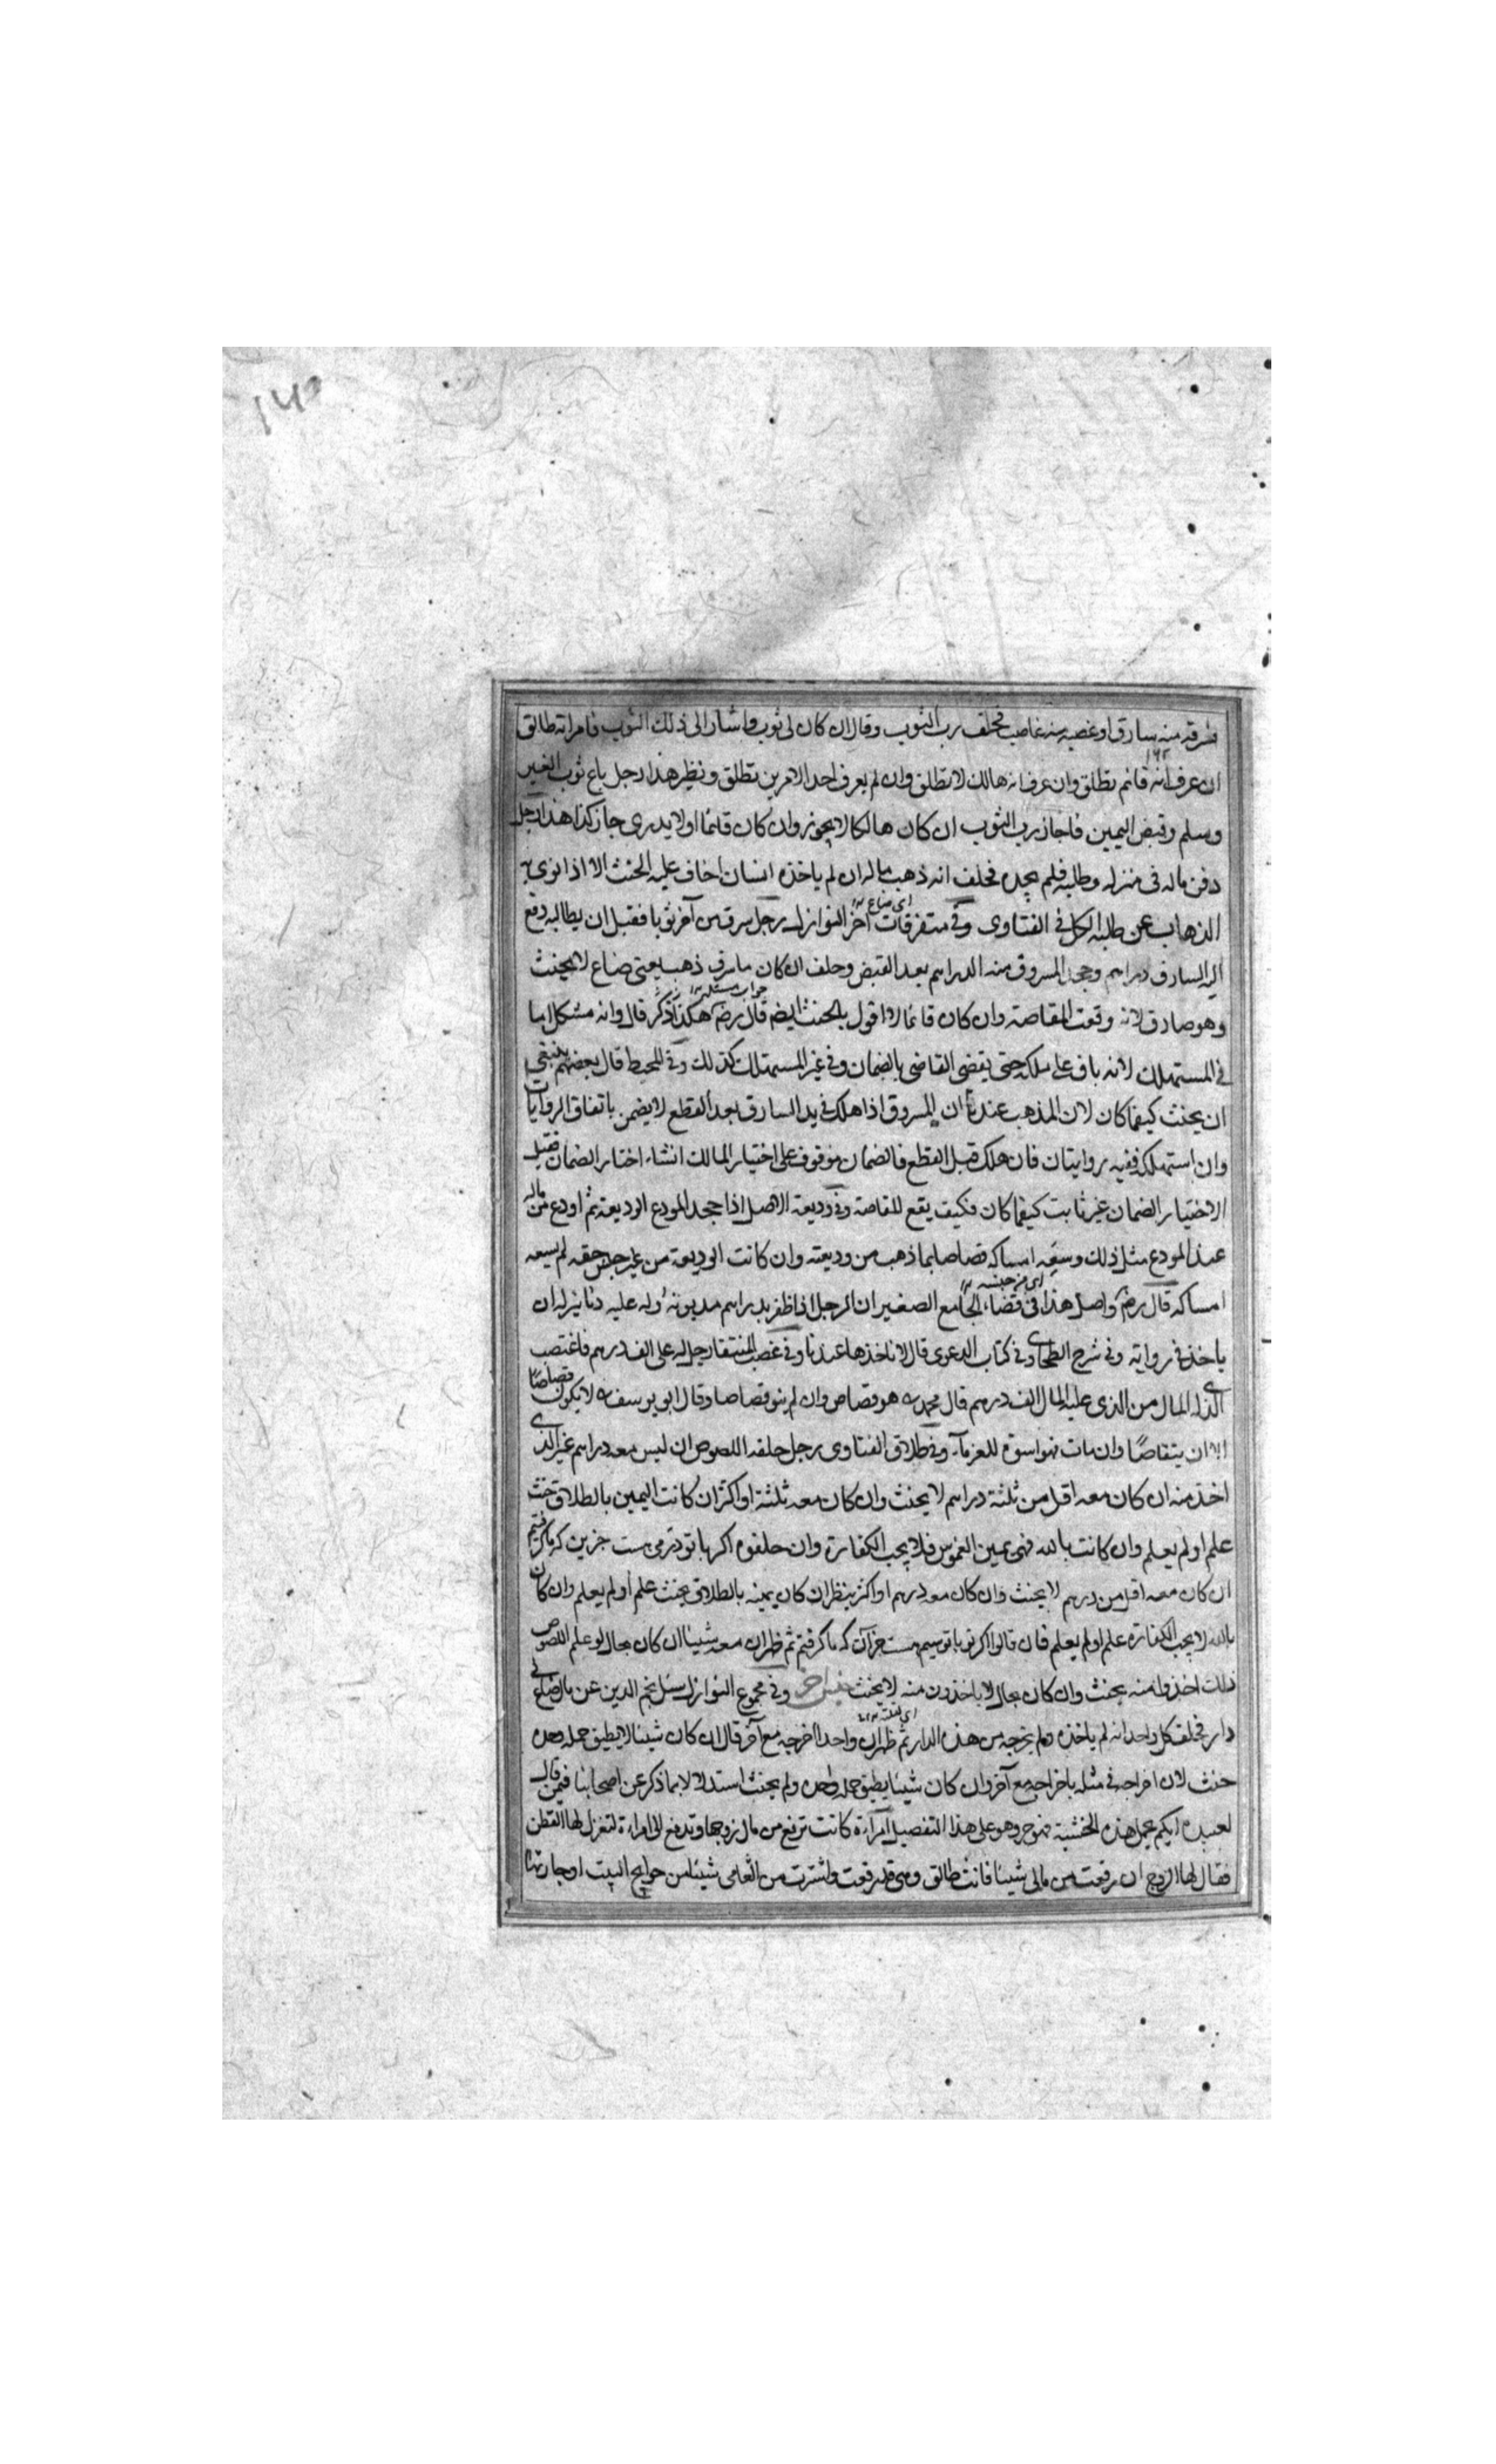 فسرقه منه سارق او غصبه منه غاصب فحلف رب الثوب وقال ان كان لى ثوب واشار الى ذلك الثوب فامراته طالق
ان عرف انه قائم تطلق وان عرف انه هالك لا تطلق وان لم يعرف احد الامرين تطلق ونظير هذا رجل باع ثوب الغير
وسلم وقبض الثمن فاجاز رب الثوب ان كان هالكا لا يجوز وان كان قائما او لا يدرى جاز كذا هذا رجل
دفن ماله فى منزله وطلبه فلم يجده فحلف انه ذهب ماله ان لم ياخذه انسان اخاف عليه الحنث الا اذا نوى به
الذهاب عن طلبه الكل فى الفتاوى وفى متفرقات اخر النوازل رجل سرق من آخر ثوبا فقبل ان يطالبه دفع
اليه السارق دراهم وجحد المسروق منه الدراهم بعد القبض وحلف ان كان ما سرق ذهب يعنى ضاع لا يحنث
وهو صادق لانه وقعت المقاصة وان كان قائما لا اقول بالحنث ايضا قال رض هكذا ذكر قال وانه مشكل اما
فى المستهلك لانه باق على ملكه حتى يقضى القاضى بالضمان وفى غير المستهلك كذلك وفى المحيط قال بعضهم ينبغى
ان يحنث كيفما كان لان المذهب عندنا ان المسروق اذا هلك فى يد السارق بعد القطع لا يضمن باتفاق الروايات
وان استهلكه ففيه روايتان فان هلك قبل القطع فالضمان موقوف على اختيار المالك ان شاء اختار الضمان فقبل
الاختيار الضمان غير ثابت كيفما كان فكيف يقع المقاصة وفى وديعة الاصل اذا جحد المودع الوديعة ثم اودع من ماله
عند المودع مثل ذلك وسعه امساكه قصاصا بما ذهب من وديعته وان كانت الوديعة من غير جنس حقه لم يسعه
امساكه قال رض واصل هذا فى قضاء الجامع الصغير ان الرجل اذا ظفر بدراهم مديونه وله عليه دنانير له ان
ياخذ فى رواية وفى شرح الطحاوى فى كتاب الدعوى قال لا ناخذها عندنا وفى غصب المنتقا رجل له على الف درهم فاغتصب
الذى له المال من الذى عليه المال الف درهم قال محمد رح هو قصاص وان لم ينو قصاصا وقال ابو يوسف رح لا يكون قصاصًا
الا ان يتقاصّا وان مات فهو اسوة للغرماء وفى طلاق الفتاوى رجل حلفه اللصوص ان ليس معه دراهم غير الذى
اخذ منه ان كان معه اقل من ثلثة دراهم لا يحنث وان كان معه ثلثة او اكثر ان كانت اليمين بالطلاق حنث
علم او لم يعلم وان كانت بالله فهى يمين الغموس فلا يجب الكفارة وان حلفوه اكر با تو درمى هست جزين كه ما كرفتيم
ان كان معه اقل من درهم لا يحنث وان كان معه درهم او اكثر ينظر ان كان يمينه بالطلاق يحنث علم او لم يعلم وان كان
بالله لا يجب الكفارة علم او لم يعلم فان قالوا اكر تو با تو سيم هست جز آن كه ما كرفتيم ثم ظهر ان معه شيئا ان كان بحال لو علم اللصوص
ذلك اخذوا منه يحنث وان كان بحال لا ياخذون منه لا يحنث وفى مجموع النوازل سئل نجم الدين عن مال ضاع فى
دار فحلف كل واحد انه لم ياخذه ولم يخرجه من هذه الدار ثم ظهر ان واحدا اخرجه مع آخر قال ان كان شيئا لا يطيق حمله وحده
حنث لان اخراجه فى مثله باخراجه مع آخر وان كان شيئا يطيق حمله وحده ولم يحنث استدلالا بما ذكر عن اصحابنا فيمن قال
لعبيده ايكم يحمل هذه الخشبة فهو حر وهو على هذا التفصيل امرأة كانت ترفع من مال زوجها وتدفع الى امراءة لتغزل لها القطن
فقال لها الزوج ان رفعت من مالى شيئا فانت طالق وهى قد رفعت واشترت من الفامى شيئا من حوايج البيت او جارتها